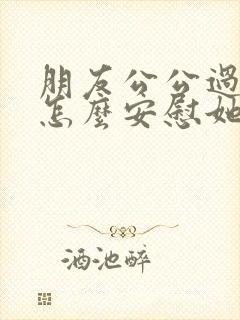 朋友公公過
怎麼安慰她
酒池醉